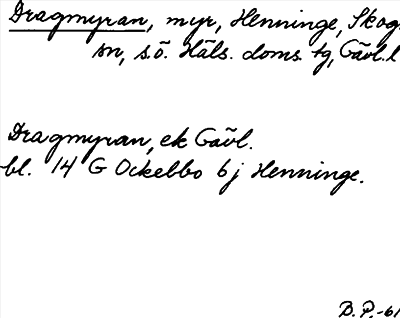 Dragmyran, myr, Henninge, Skog
sn, s.ö. Häls. doms. tg, Gävl. l
Dragmyran, ek Gävl.
bl. 14 G Ockelbo 6 j Henninge.
B.P.-61